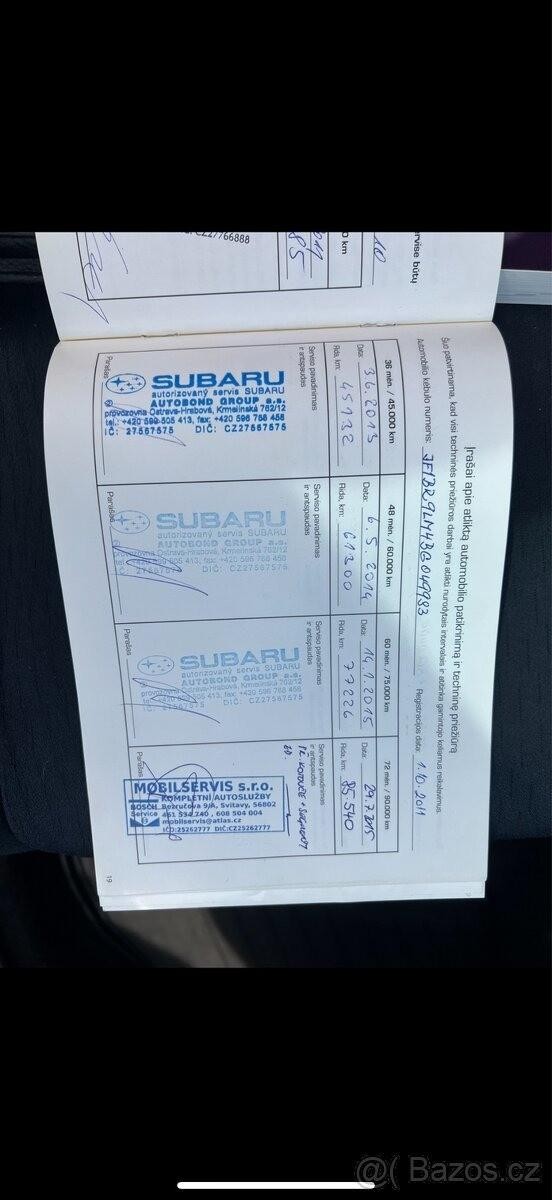 CZ27766888
rvise būtų
10
0 km
85
Įrašai apie atliktą automobilio patikrinimą ir techninę priežiūrą
Šiuo patvirtinama, kad visi techninės priežiūros darbai yra atlikti nurodytais intervalais ir atitinka gamintojo keliamus reikalavimus.
Automobilio kėbulo numeris: JF1BR9LM4BG049983 Registracijos data: 1.10.2011
36 mėn. / 45.000 km
Data: 3.6.2013
Rida, km: 45132
Serviso pavadinimas
ir antspaudas
SUBARU
autorizovaný servis SUBARU
AUTOBOND GROUP a.s.
provozovna Ostrava-Hrabová, Krmelínská 762/12
tel.: +420 599 505 413, fax: +420 596 768 456
IČ: 27567575 DIČ: CZ27567575
Parašas
48 mėn. / 60.000 km
Data: 6.5.2014
Rida, km: 61300
Serviso pavadinimas
ir antspaudas
SUBARU
autorizovaný servis SUBARU
AUTOBOND GROUP a.s.
provozovna Ostrava-Hrabová, Krmelínská 762/12
tel.: +420 599 505 413, fax: +420 596 768 456
IČ: 27567575 DIČ: CZ27567575
Parašas
60 mėn. / 75.000 km
Data: 14.1.2015
Rida, km: 77226
Serviso pavadinimas
ir antspaudas
SUBARU
autorizovaný servis SUBARU
AUTOBOND GROUP a.s.
provozovna Ostrava-Hrabová, Krmelínská 762/12
tel.: +420 599 505 413, fax: +420 596 768 456
IČ: 27567575 DIČ: CZ27567575
Parašas
72 mėn. / 90.000 km
Data: 29.7.2015
Rida, km: 85.540
Serviso pavadinimas
ir antspaudas
PŘ. KOTOUČE + SEGMENTY
MOBILSERVIS s.r.o.
KOMPLETNÍ AUTOSLUŽBY
BOSCH Service
Bezručova 9/A, Svitavy, 56802
461 534 740 , 608 504 004
mobilservis@atlas.cz
IČO:25262777 DIČ:CZ25262777
Parašas
19
@( Bazos.cz